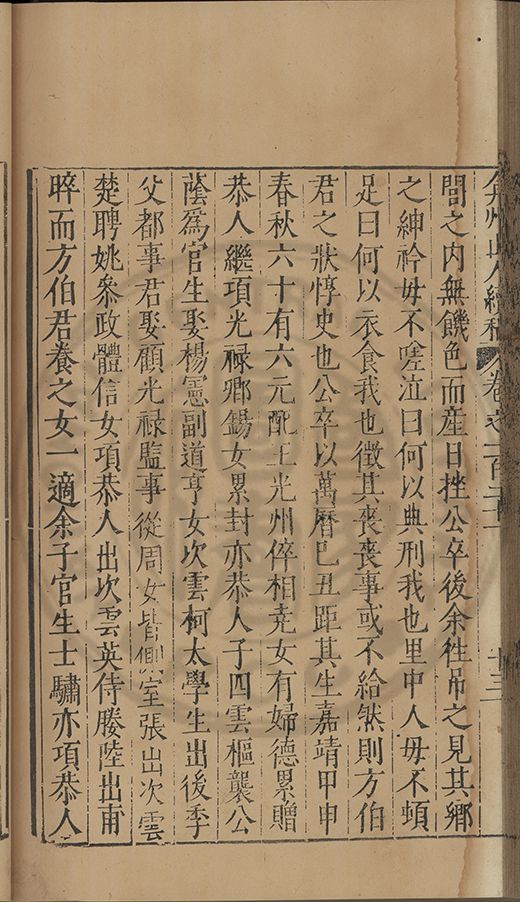 弇州山人續稿 卷之一百二十 十三
閭之内無饑色而産日挫公卒後余徃吊之見其鄉
之紳衿毋不嗟泣曰何以典刑我也里中人毋不頓
足曰何以衣食我也徴其丧丧事或不給然則方伯
君之狀惇史也公卒以萬曆巳丑距其生嘉靖甲申
春秋六十有六元配王光州倅相尭女有婦德累贈
恭人繼項光禄卿錫女累封亦恭人子四雲樞襲公
蔭爲官生娶楊憲副道亨女次雲柯太學生出後季
父都事君娶顧光禄監事從周女皆側室張出次雲
楚聘姚叅政體信女項恭人出次雲英侍媵陸出甫
晬而方伯君養之女一適余子官生士驌亦項恭人